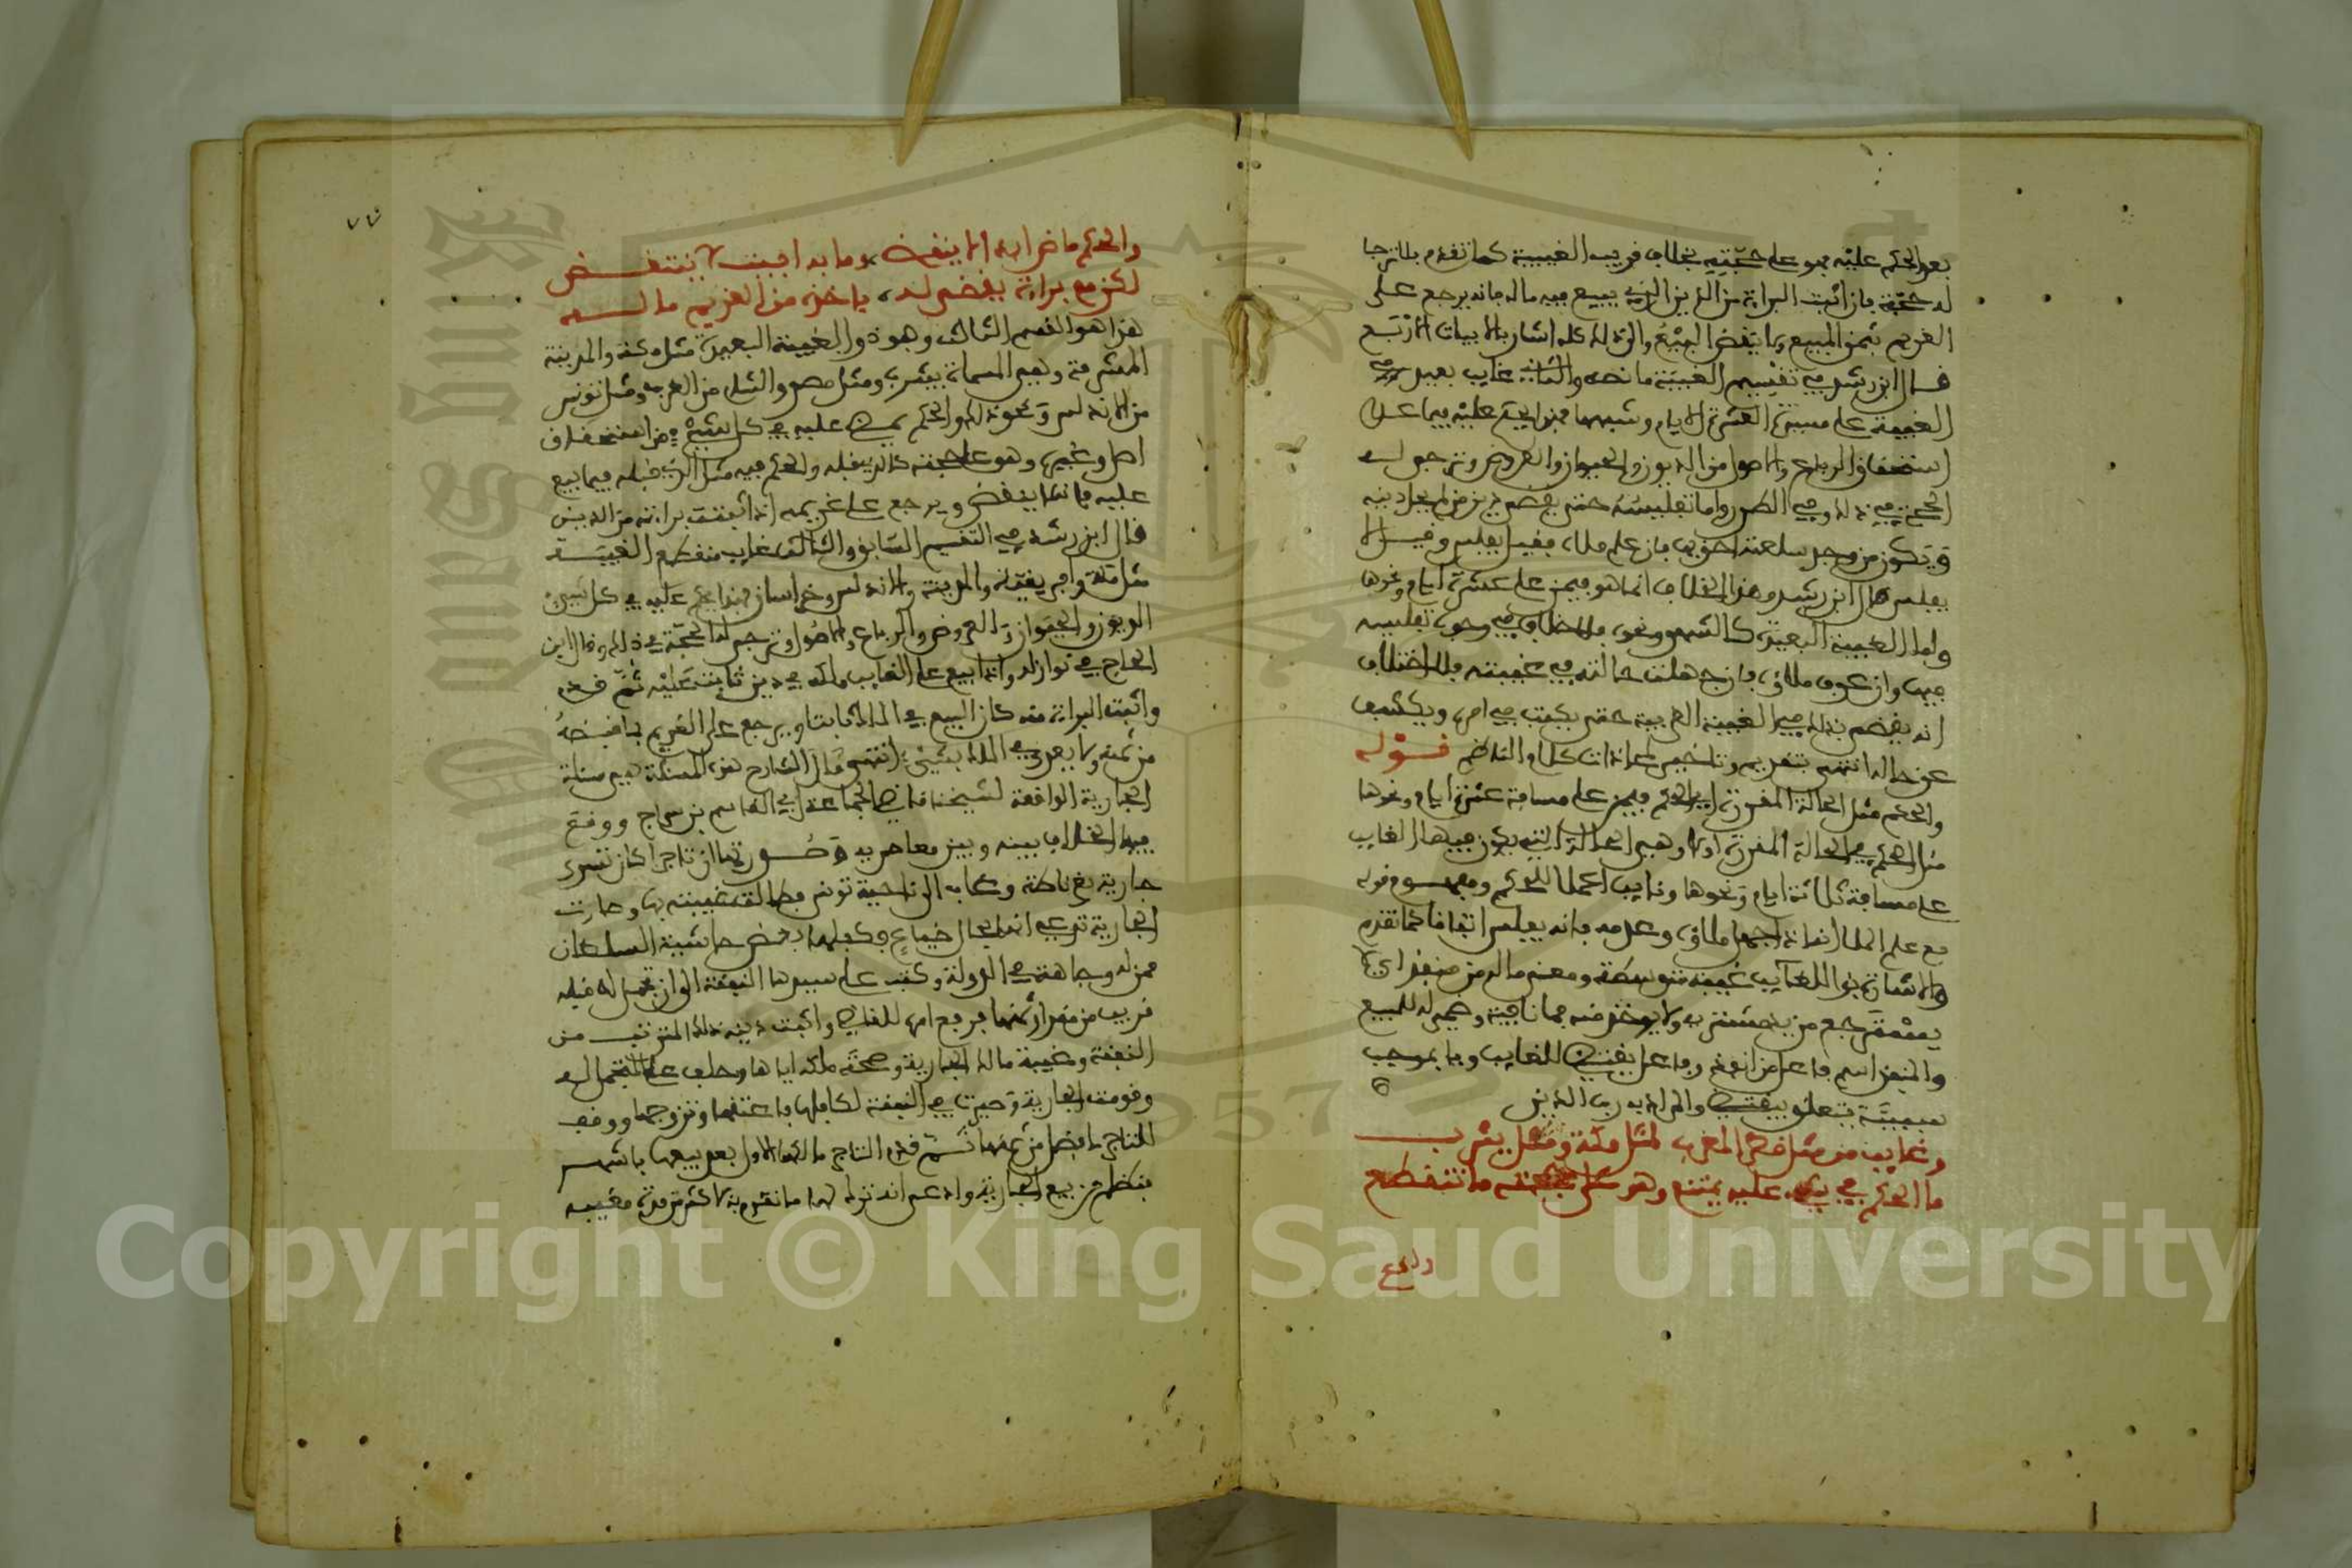 بعد الحكم عليه فهو على حجته بخلاف قريب الغيبة كما تقدم بلا ترجا
له حجة فإن أثبت البراءة من الدين الذي بيع فيه ماله فإنه يرجع على
الغريم بثمن المبيع ولا ينقض البيع وإلى ذلك كله أشار بالأبيات الأربع
قال ابن رشد في تقسيم الغيبة ما نصه والثاني غايب بعيد
الغيبة على مسيرة العشرة الأيام وشبهها فهذا يحكم عليه فيما عدا
استحقاق الرباع والأصول من الديون والحيوان والعروض وترجى له
الحجة في ذلك وفي الصدر وأما تفليسه حتى يقضى دين من لم يحل دينه
ويكون من وجد سلعته أحق بها فإن علم ملاؤه فقيل يفلس وقيل لا
يفلس قال ابن رشد وهذا الخلاف إنما هو فيمن على عشرة أيام ونحوها
وأما الغيبة البعيدة كالشهر ونحوه فلا خلاف في وجوب تفليسه
فيها وإن عرف ملاؤه فإن جهلت حالته في غيبته فلا اختلاف
أنه يقضى بذلك في الغيبة القريبة حتى يكتب في أمره ويكشف
عن حاله انتهى بتقديم وتأخير لمحاذات كلام الناظم قوله
والحكم مثل الحالة المقررة أي الحكم فيمن على مسافة عشرة أيام ونحوها
مثل الحكم في الحالة المقررة أولا وهي الحالة التي يكون فيها الغايب
على مسافة ثلاثة أيام ونحوها ونايب اعملا للحكم ومفهوم قوله
مع علم الملا أنه إذا جهل ملاؤه وعدمه فإنه يفلس اتفاقا كما تقدم
والإشارة بذا للغايب غيبة متوسطة ومعنى ماله من منفذ أي لا
والمنفذ اسم فاعل من أنفذ وفاعل يقتضي للغايب وبا بموجب
سببية يتعلق بيقتضي والمراد به رب الدين
وغايب من مثل قطر المغرب لمثل مكة ومثل يثرب
ما الحكم في شيء عليه يمتنع وهو على حجته ما تنقطع
والحكم
٧٧
والحكم ماض أبدا لا ينقض وما به أفيت لا ينتقض
لكن مع براءة يقضى له يأخذ من الغريم ماله
هذا هو القسم الثالث وهو ذو الغيبة البعيدة مثل مكة والمدينة
المشرفة وهي المسماة بيثرب ومثل مصر والشام من المغرب ومثل تونس
من الأندلس ونحو ذلك والحكم يمضي عليه في كل شيء من استحقاق
أصل وغيره وهو على حجته كالذي قبله والحكم فيه مثل الذي قبله فيما بيع
عليه فإنه لا ينقض ويرجع على غريمه إذا أثبت براءته من الدين
قال ابن رشد في التقسيم السابق والثالث غايب منقطع الغيبة
مثل مكة وإفريقية والمدينة والأندلس وخراسان فهذا يحكم عليه في كل شيء
الديون والحيوان والعروض والرباع والأصول وترجى له الحجة في ذلك وقال ابن
الحاج في نوازله وإذا بيع على الغايب ملكه في دين ثابت عليه ثم قدم
وأثبت البراءة منه كان البيع في الملك ثابتا ويرجع على الغريم بما قبضه
من ثمنه ولا يعدى في الملك بشيء انتهى قال الشارح هذه المسئلة هي مسئلة
الجارية الواقعة لشيخنا قاضي الجماعة أبي القاسم بن سراج ووقع
فيها الخلاف بينه وبين معاصريه وصورتها أن تاجرا كان تسرى
جارية بغرناطة وغاب إلى ناحية تونس فطالت غيبته بها وصارت
الجارية تدعي أنها بحال ضياع وكفلها بعض حاشية السلطان
ممن له وجاهة في الدولة وكتب على سيدها النفقة إلى أن تجمل له قبله
قريب من مقدار ثمنها فرفع أمره للقاضي وأثبت دينه ذلك المترتب من
النفقة وغيبة مالك الجارية وصحة ملكه إياها وحلف على المتجمل له
وقومت الجارية وصيرت في النفقة لكافلها فاعتقها وتزوجها ووقف
للتاجر ما فضل من ثمنها ثم قدم التاجر مالكها الأول بعد بيعها بأشهر
فتظلم من بيع الجارية وادعى أنه ترك لها ما تقوم به لأكثر من مدة مغيبه